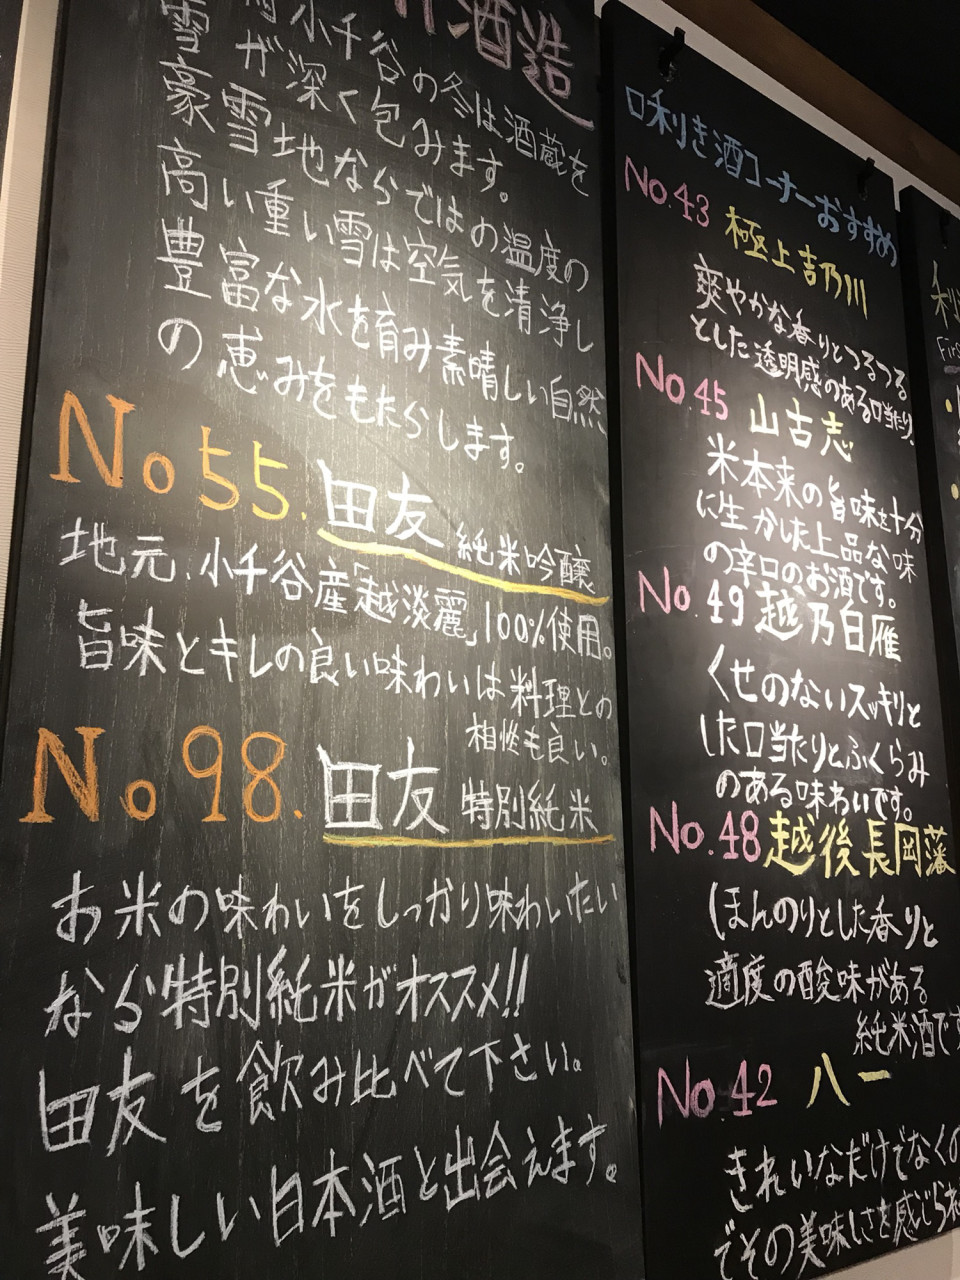 酒造
雪 小千谷の冬は酒蔵を
が深く包みます。
豪雪地ならではの温度の
高い重い雪は空気を清浄し
豊富な水を育み素晴しい自然
の恵みをもたらします。
No 55. 田友 純米吟醸
地元、小千谷産「越淡麗」100%使用。
旨味とキレの良い味わいは料理との
相性も良い。
No 98. 田友 特別純米
お米の味わいをしっかり味わいたい
なら特別純米がオススメ!!
田友を飲み比べて下さい。
美味しい日本酒と出会えます。
唎き酒コーナーおすすめ
No.43 極上吉乃川
爽やかな香りとつるつる
とした透明感のある口当たり。
No.45 山古志
米本来の旨味を十分
に生かした上品な味
の辛口のお酒です。
No.49 越乃白雁
くせのないスッキリと
した口当たりとふくらみ
のある味わいです。
No.48 越後長岡藩
ほんのりとした香りと
適度の酸味がある
純米酒です
No.42 八一
きれいなだけでなくの
でその美味しさを感じられ
利
First